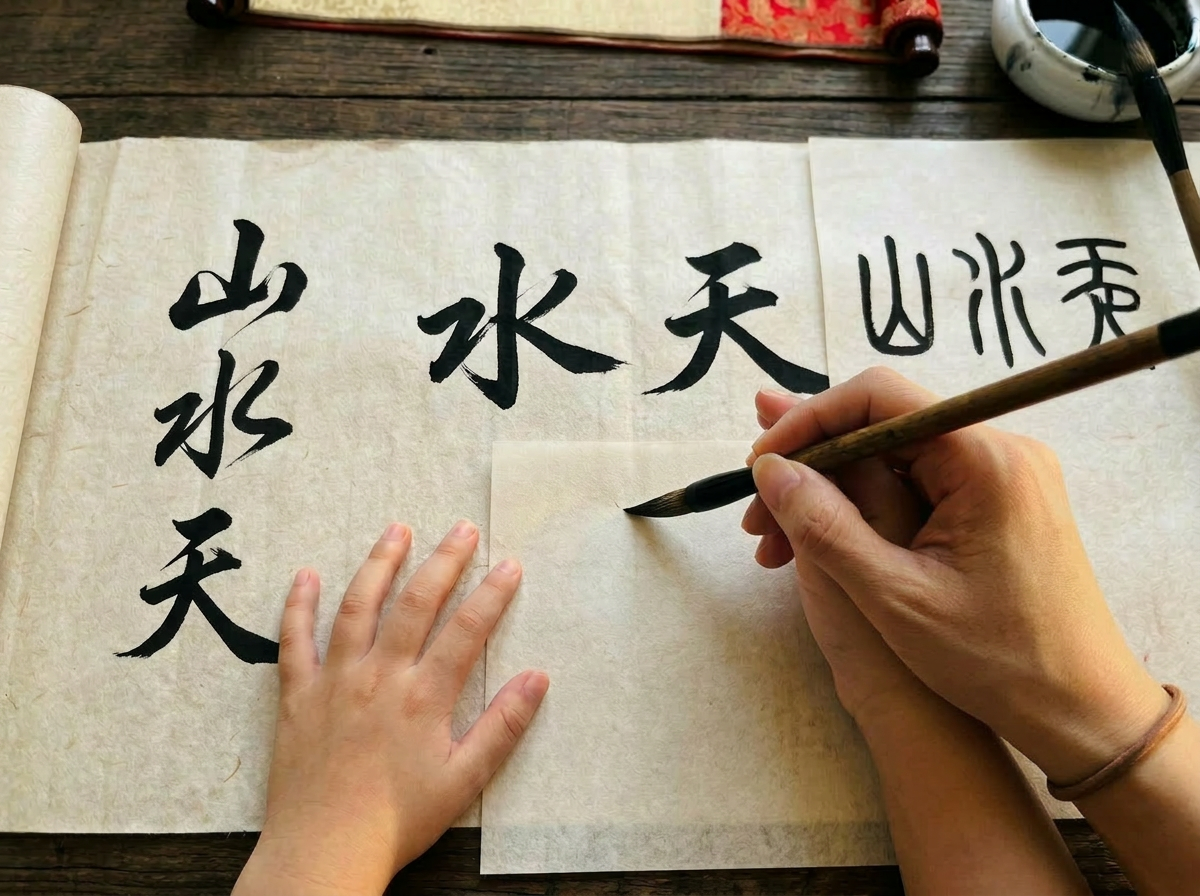 山水天
水天
山水